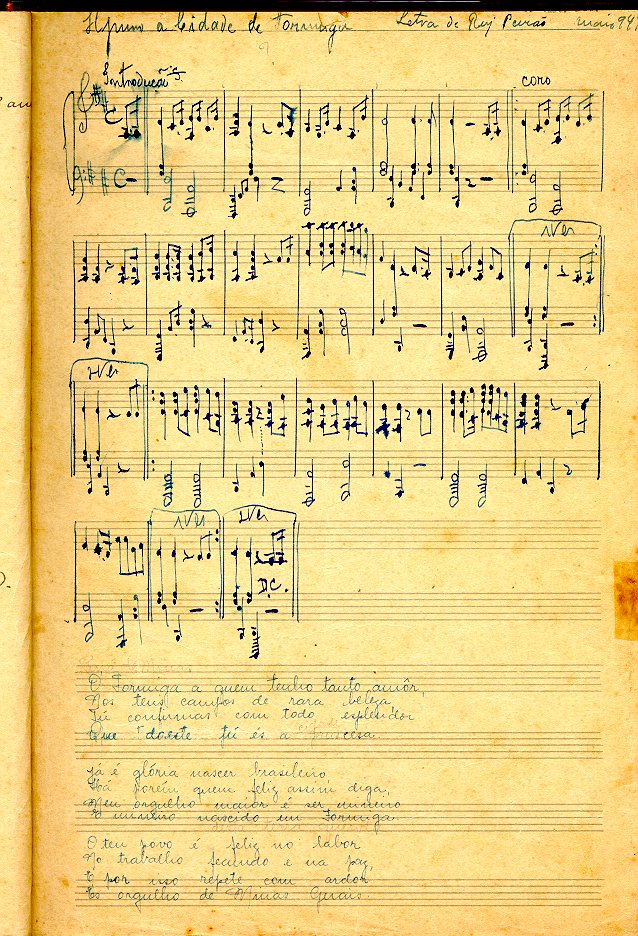 Hymno a Cidade de Formiga Letra de Ruy Peirão maio 941
Introdução
coro
1ª Vez
2ª Vez
1ª Vez
2ª Vez
D.C.
O' Formiga a quem tenho tanto amôr,
Nos teus campos de rara beleza
Tú confirmas com todo esplendor
Que d'oeste tú és a Princesa.
Já é glória nascer brasileiro
Há porém quem feliz assim diga,
Meu orgulho maior é ser mineiro
E mineiro nascido em Formiga.
O teu povo é feliz no labor
No trabalho fecundo e na paz,
E por isso repete com ardor
És orgulho de Minas Gerais.